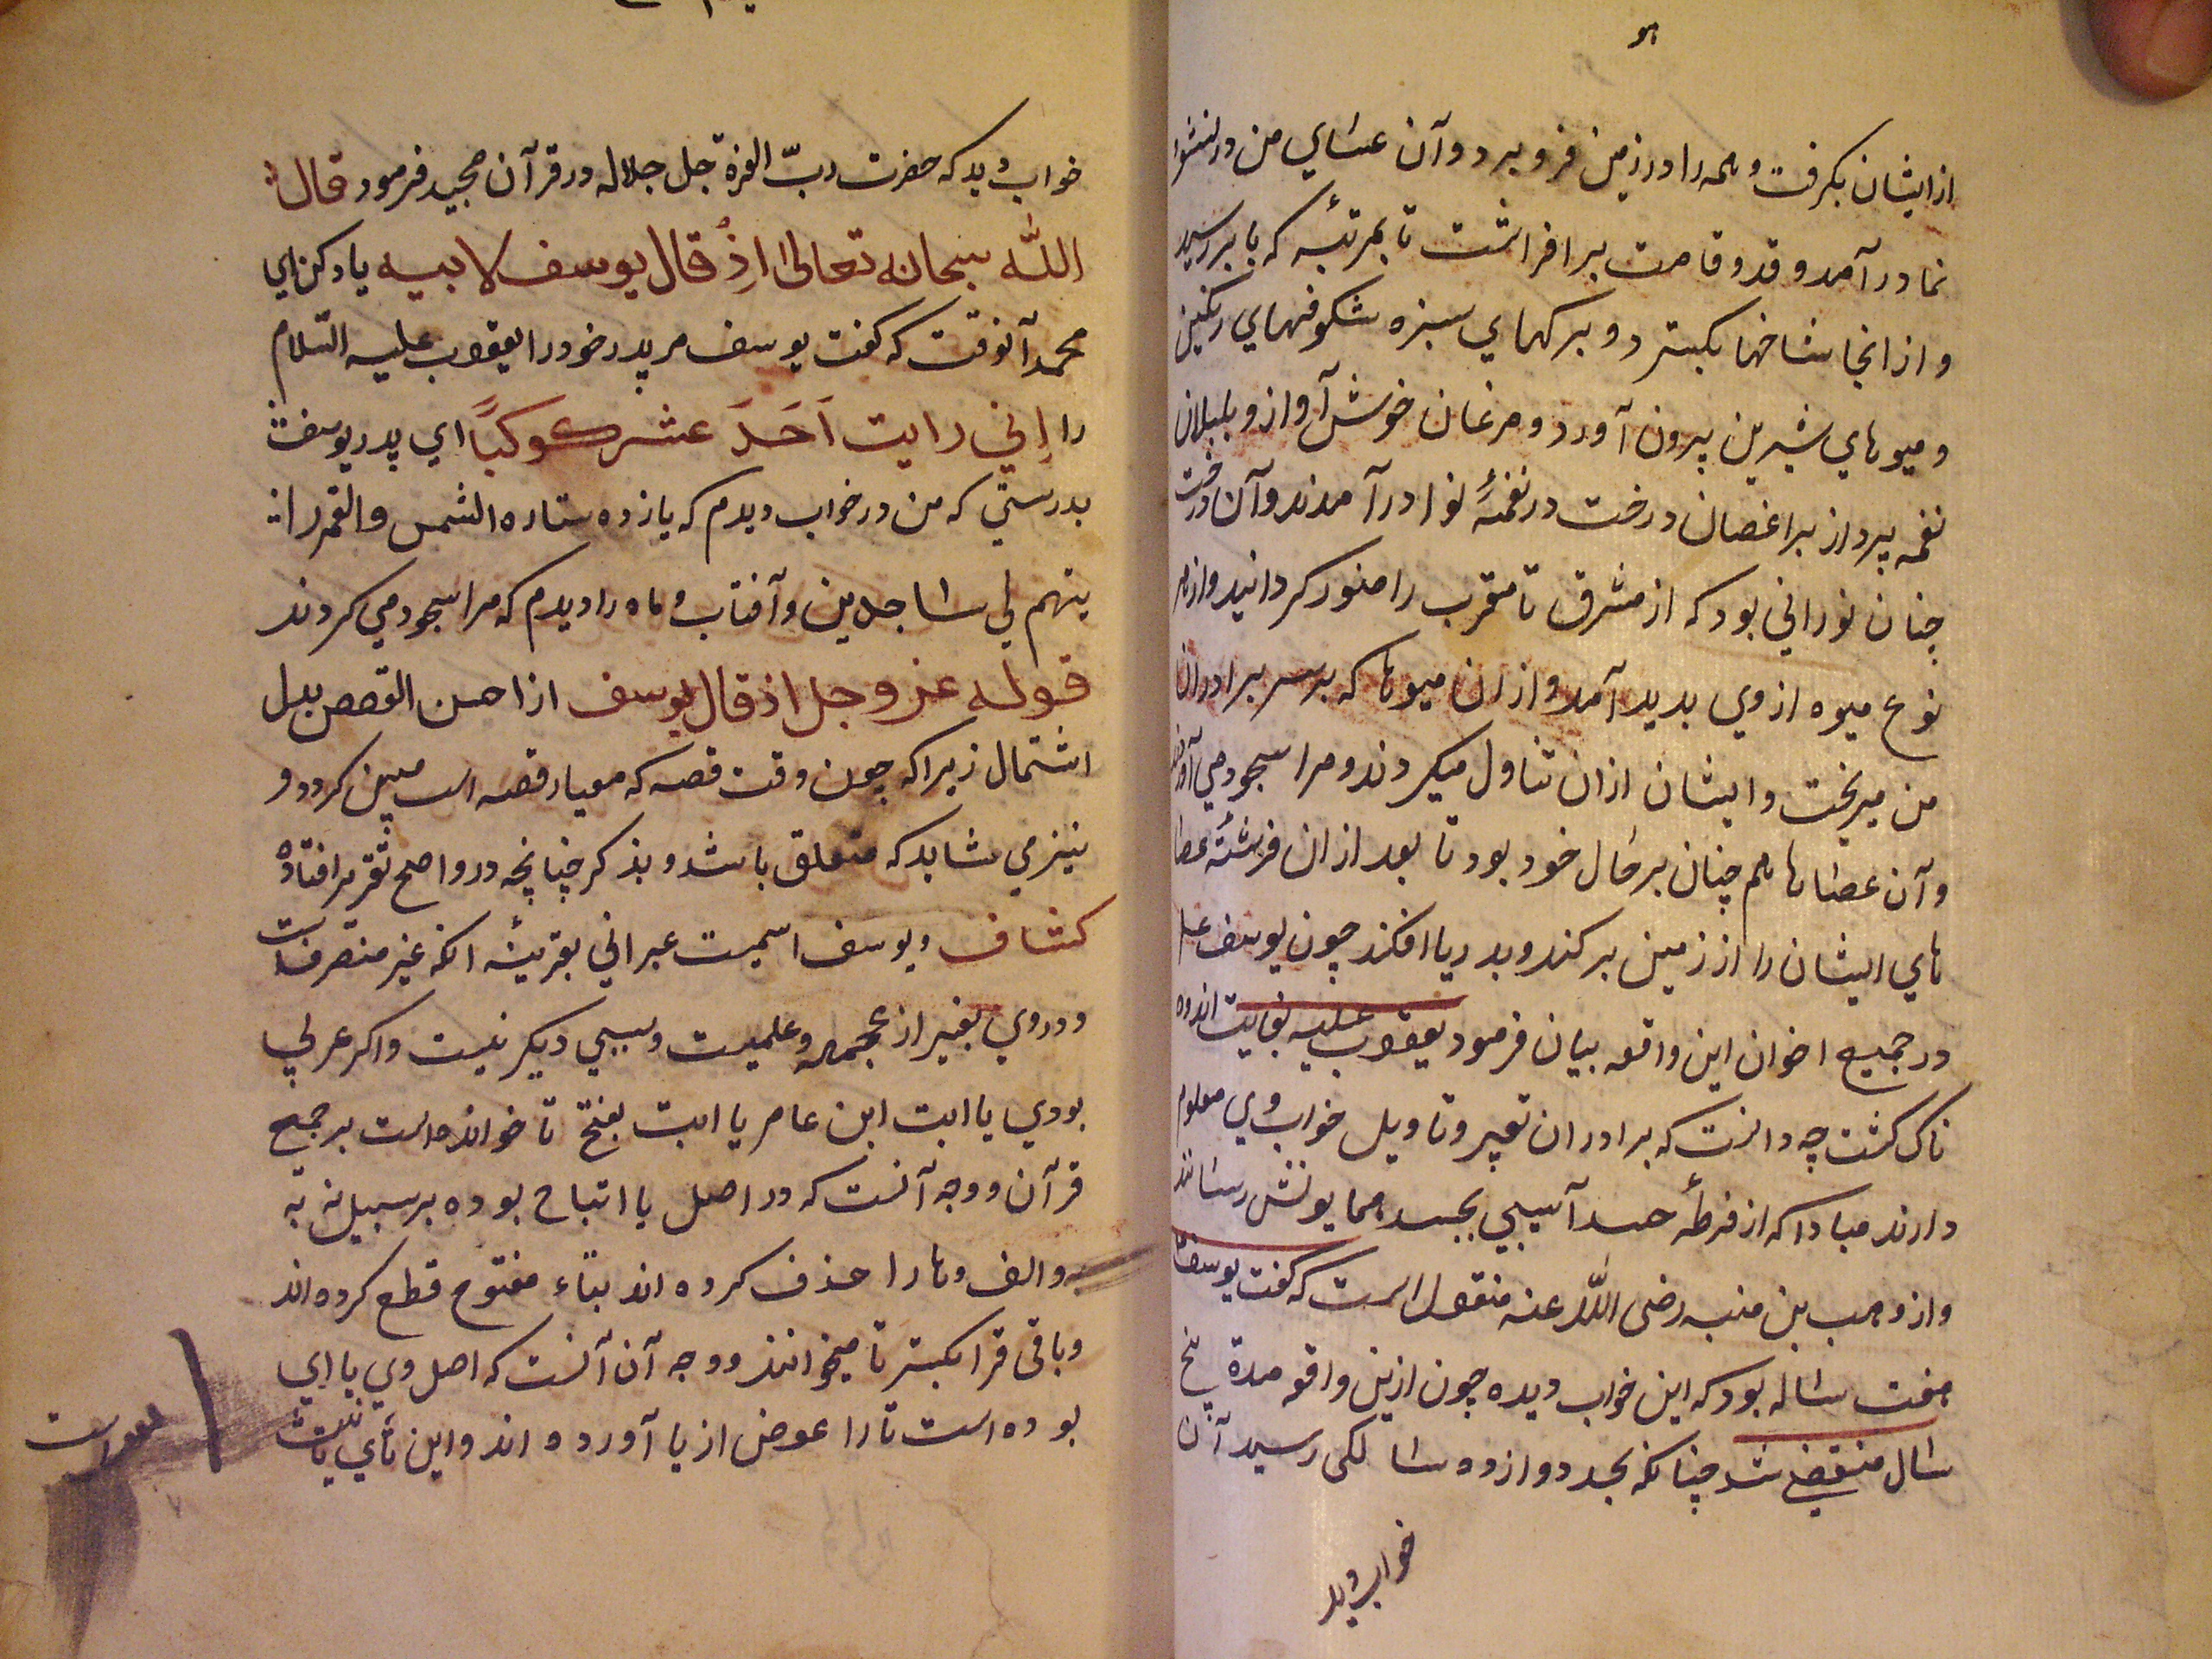 هو
از ایشان بگرفت و همه را در زمین فرو برد و آن عصای من در نشو
نما در آمد و قد و قامت بر افراشت تا بمرتبۀ که بابر رسید
و از انجا شاخها بگسترد و برکهای سبزه شکوفهای رنگین
و میوهای شیرین بیرون آورد و مرغان خوش آواز و بلبلان
نغمه پرداز بر اغصان درخت در نغمۀ نوا در آمدند و آن درخت
چنان نورانی بود که از مشرق تا مغرب را منور کردانید و از هر
نوع میوه از وی بدید آمد و از ان میوها که بر سر برادران
من میریخت و ایشان از ان تناول میکردند و مرا سجود می آوردند
و آن عصاها هم چنان بر حال خود بود تا بعد از ان فرشتۀ عصا
های ایشان را از زمین بر کند و بدریا افکند چون یوسف علیه
در جمیع اخوان این واقعه بیان فرمود یعقوب علیه بغایت اندوه
ناک کشت چه دانست که برادران تعبیر و تاویل خواب وی معلوم
دارند مبادا که از فرطۀ حسد آسیبی بجسد همایونش رسانند
و از وهب بن منبه رضی الله عنه منقول است که گفت یوسف
هفت ساله بود که این خواب دیده چون ازین واقعه مدة پنج
سال منقضی شد چنانکه بحد دوازده سالکی رسید آن
خواب دید
خواب دید که حضرت ربّ العزة جل جلاله در قرآن مجید فرمود قال
الله سبحانه تعالی اذ قال یوسف لابیه یاد کن ای
محمد آنوقت که گفت یوسف مر پدر خود را یعقوب علیه السلام
را اِنی رایت اَحَدَ عشر کوکبًا ای پدر یوسف
بدرستی که من در خواب دیدم که یازده ستاره الشمس والقمر را
یتهم لی ساجدین و آفتاب و ماه را دیدم که مرا سجود می کردند
قوله عز وجل اذ قال یوسف از احسن القصص بدل
اشتمال زیرا که چون وقت قصه که معیار قصه است مبین کردد و
نیز می شاید که متعلق باشد و بذکر چنانچه در واضح تقریر افتاده
کشاف و یوسف اسمیست عبرانی بقرینۀ انکه غیر منصرفست
و در وی بغیر از عجمه و علمیت و سببی دیکر نیست و اکر عربی
بودی یا ابت ابن عامر یا ابت بفتح تا خوانده است بر جمیع
قرآن و وجه آنست که در اصل یا ابتاه بوده بر سبیل ند به
و الف و ها را حذف کرده اند بتاء مفتوح قطع کرده اند
و باقی قرا بکسر تا میخوانند و وجه آن آنست که اصل وی یا ابی
بوده است تا را عوض از یا آورده اند و این تای تانیث